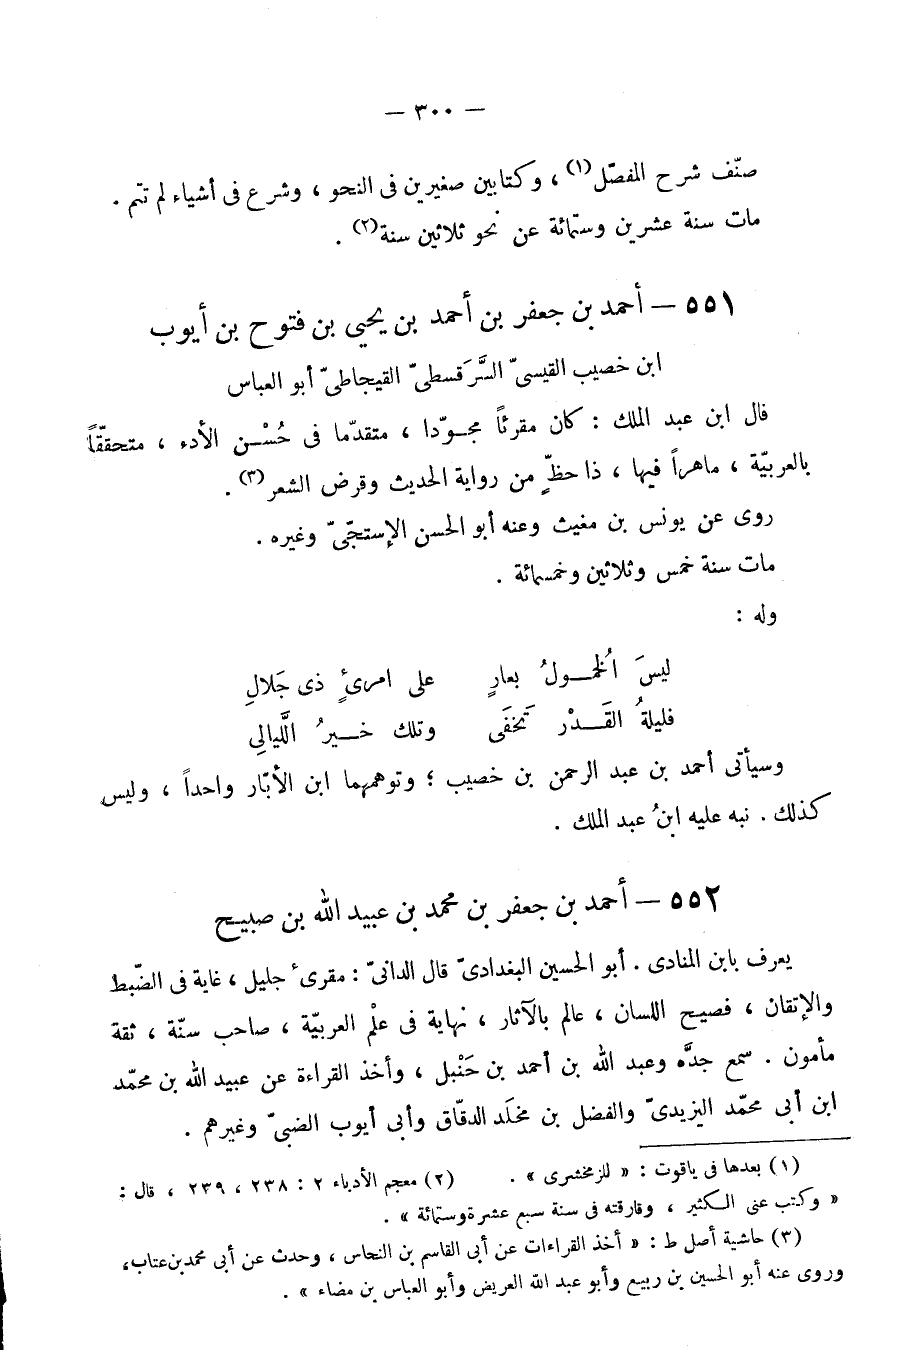 — ٣٠٠ —
صنّف شرح المفصّل(١) ، وكتابين صغيرين فى النحو ، وشرع فى أشياء لم تتم .
مات سنة عشرين وستمائة عن نحو ثلاثين سنة(٢) .
٥٥١ — أحمد بن جعفر بن أحمد بن يحيى بن فتوح بن أيوب
ابن خصيب القيسىّ السَّرَقسطىّ القيجاطىّ أبو العباس
قال ابن عبد الملك : كان مقرئاً مجـوّدا ، متقدّما فى حُسْـن الأدء ، متحققّاً
بالعربيّة ، ماهراً فيها ، ذا حظّ من رواية الحديث وقرض الشعر(٣) .
روى عن يونس بن مغيث وعنه أبو الحسن الإستجّىّ وغيره .
مات سنة خمس وثلاثين وخمسمائة .
وله :
ليسَ الُخمـولُ بعارٍ على امرئٍ ذى جَلالِ
فليلةُ القَـدْر تَخفَى وتلك خـيرُ الَّليالِى
وسيأتى أحمد بن عبد الرحمن بن خصيب ؛ وتوهمهما ابن الأبّار واحداً ، وليس
كذلك . نبه عليه ابنُ عبد الملك .
٥٥٢ — أحمد بن جعفر بن محمد بن عبيد الله بن صبيح
يعرف بابن المنادى . أبو الحسين البغدادىّ قال الدانىّ : مقرئ جليل ، غاية فى الضّبط
والإتقان ، فصيح اللسان ، عالم بالآثار ، نهاية فى علْم العربيّة ، صاحب سنّة ، ثقة
مأمون . سمع جدَّه وعبد الله بن أحمد بن حَنْبل ، وأخذ القراءة عن عبيد الله بن محمّد
ابن أبى محمّد اليزيدىّ والفضل بن مخلَد الدقّاق وأبى أيوب الضبىّ وغيرهم .
(١) بعدها فى ياقوت : « للزمخشرى » . (٢) معجم الأدباء ٢ : ٢٣٨ ، ٢٣٩ ، قال :
« وكتب عنى الـكثير ، وفارقته فى سنة سبع عشرة وستمائة » .
(٣) حاشية أصل ط : « أخذ القراءات عن أبى القاسم بن النحاس ، وحدث عن أبى محمد بن عتاب،
وروى عنه أبو الحسين بن ربيع وأبو عبد الله العريض وأبو العباس بن مضاء » .